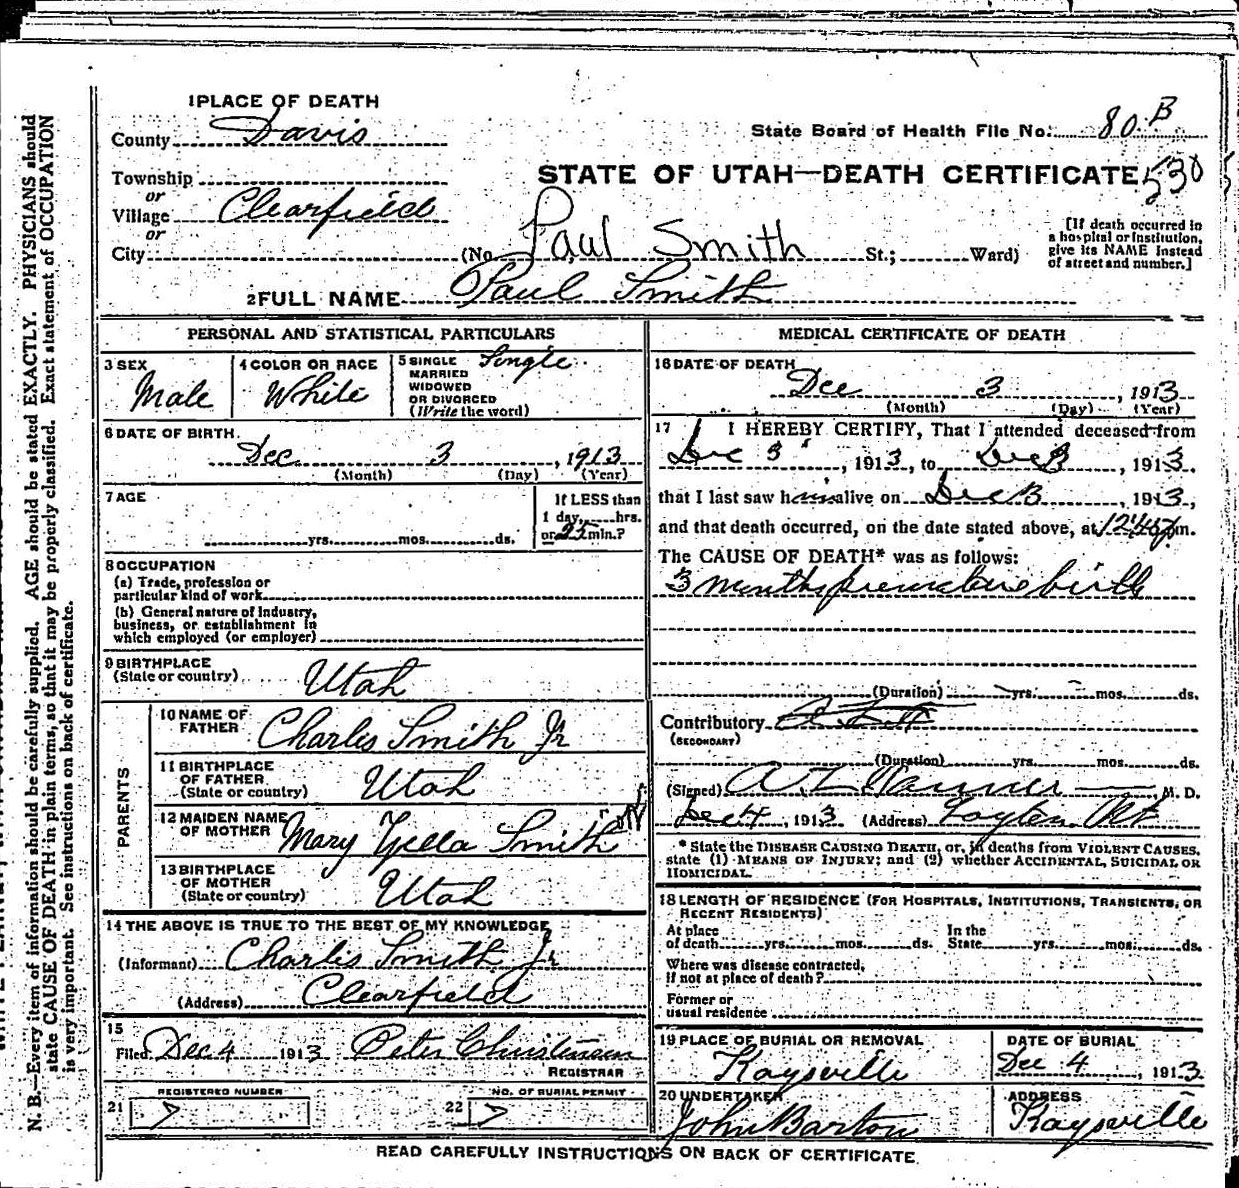 1 PLACE OF DEATH
County Davis
State Board of Health File No. 80 B
Township
or
Village Clearfield
or
City
STATE OF UTAH—DEATH CERTIFICATE 530
(No Paul Smith St.; Ward)
[If death occurred in
a hospital or institution,
give its NAME instead
of street and number.]
2 FULL NAME Paul Smith
PERSONAL AND STATISTICAL PARTICULARS
3 SEX
Male
4 COLOR OR RACE
White
5 SINGLE Single
MARRIED
WIDOWED
OR DIVORCED
(Write the word)
6 DATE OF BIRTH
Dec 3, 1913
(Month) (Day) (Year)
7 AGE
yrs. mos. ds.
If LESS than
1 day, hrs.
or 25 min.?
8 OCCUPATION
(a) Trade, profession or
particular kind of work
(b) General nature of industry,
business, or establishment in
which employed (or employer)
9 BIRTHPLACE
(State or country) Utah
PARENTS
10 NAME OF
FATHER Charles Smith Jr
11 BIRTHPLACE
OF FATHER
(State or country) Utah
12 MAIDEN NAME
OF MOTHER Mary Smith
13 BIRTHPLACE
OF MOTHER
(State or country) Utah
14 THE ABOVE IS TRUE TO THE BEST OF MY KNOWLEDGE
(Informant) Charles Smith Jr
(Address) Clearfield
15
Filed Dec 4 1913 Peter Christensen
REGISTRAR
REGISTERED NUMBER
21
NO. OF BURIAL PERMIT
22
MEDICAL CERTIFICATE OF DEATH
16 DATE OF DEATH
Dec 3, 1913
(Month) (Day) (Year)
17 I HEREBY CERTIFY, That I attended deceased from
Dec 3, 1913, to Dec 3, 1913,
that I last saw him alive on Dec 3, 1913,
and that death occurred, on the date stated above, at 12:45 p m.
The CAUSE OF DEATH* was as follows:
3 months premature birth
(Duration) yrs. mos. ds.
Contributory
(SECONDARY)
(Duration) yrs. mos. ds.
(Signed) A Z Tanner M. D.
Dec 4, 1913 (Address) Layton Ut
* State the DISEASE CAUSING DEATH, or, in deaths from VIOLENT CAUSES,
state (1) MEANS OF INJURY; and (2) whether ACCIDENTAL, SUICIDAL OR
HOMICIDAL.
18 LENGTH OF RESIDENCE (FOR HOSPITALS, INSTITUTIONS, TRANSIENTS, OR
RECENT RESIDENTS)
At place
of death yrs. mos. ds.
In the
State yrs. mos. ds.
Where was disease contracted,
if not at place of death?
Former or
usual residence
19 PLACE OF BURIAL OR REMOVAL
Kaysville
DATE OF BURIAL
Dec 4, 1913
20 UNDERTAKER
John Barton
ADDRESS
Kaysville
READ CAREFULLY INSTRUCTIONS ON BACK OF CERTIFICATE
N. B.—Every item of information should be carefully supplied. AGE should be stated EXACTLY. PHYSICIANS should
state CAUSE OF DEATH in plain terms, so that it may be properly classified. Exact statement of OCCUPATION
is very important. See instructions on back of certificate.